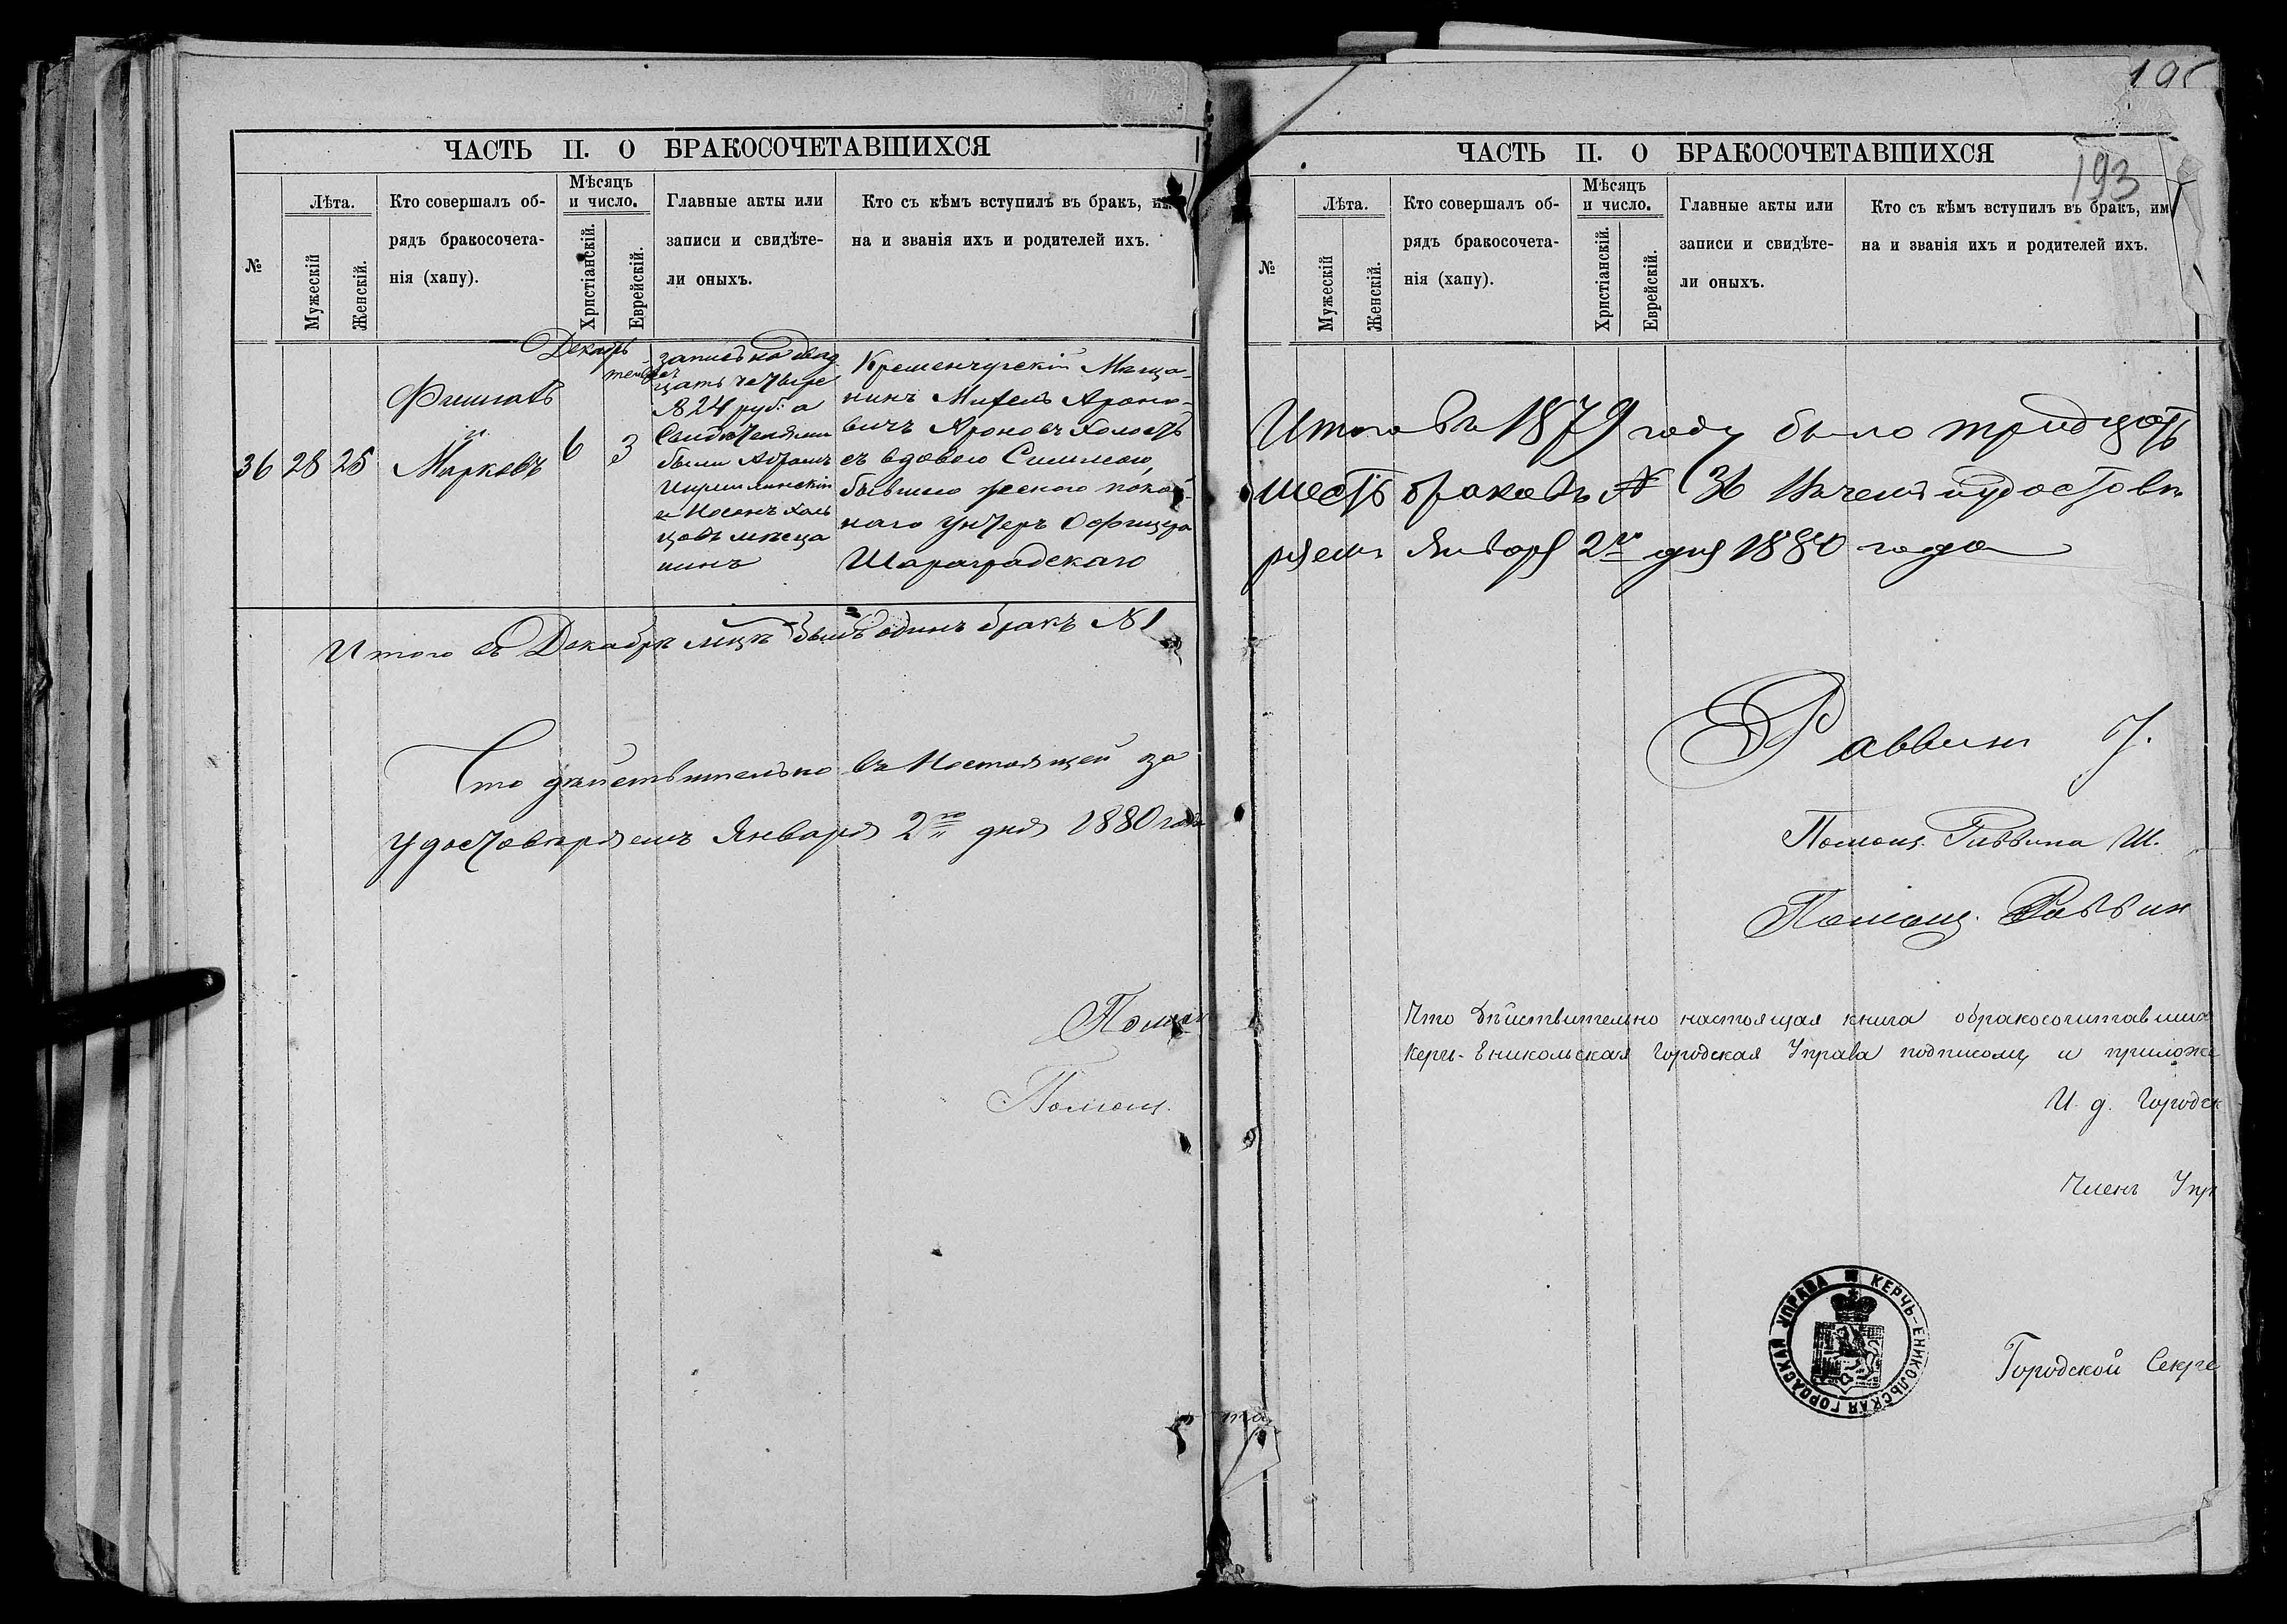 ЧАСТЬ II. О БРАКОСОЧЕТАВШИХСЯ
№
Лѣта.
Мужескій
Женскій.
Кто совершалъ об-
рядъ бракосочета-
нія (хапу).
Мѣсяцъ
и число.
Христіанскій.
Еврейскій.
Главные акты или
записи и свидѣте-
ли оныхъ.
Кто съ кѣмъ вступилъ въ бракъ, им
на и званія ихъ и родителей ихъ.
Декабрь
36 28 25
Фишманъ
и
Марковъ
6 3
запись на двад-
цать четыре
№ 24 руб: а
Свидѣтелями
были Абрамъ
и Носонъ
мѣща
нинъ
Кременчугскій Мѣща-
нинъ Ароно-
вичъ Ароновъ Холостъ
съ вдовою Симмою,
бывшею женою покой-
наго Унтеръ Офицера
Шараградскаго
Итого въ Декабрѣ мцѣ былъ одинъ бракъ № 1
Что дѣйствительно въ Настоящей за
удостовѣряемъ Января 2го дня 1880 года
Помощ
Помощ.
195
193
ЧАСТЬ II. О БРАКОСОЧЕТАВШИХСЯ
№
Лѣта.
Мужескій
Женскій.
Кто совершалъ об-
рядъ бракосочета-
нія (хапу).
Мѣсяцъ
и число.
Христіанскій.
Еврейскій.
Главные акты или
записи и свидѣте-
ли оныхъ.
Кто съ кѣмъ вступилъ въ бракъ, им
на и званія ихъ и родителей ихъ.
Итого въ 1879 году было тридцать
шесть браковъ № 36 въ чемъ и удостовѣ
ряемъ Января 2го дня 1880 года
Раввинъ
Помощ. Раввина Ш.
Помощ. Раввин
Что дѣйствительно настоящая книга о бракосочитавших
Керчь-Еникольская Городская Управа подписомъ и приложе
И. д. Городск
Членъ Упр
КЕРЧЬ-ЕНИКОЛЬСКАЯ ГОРОДСКАЯ УПРАВА
Городской Секре